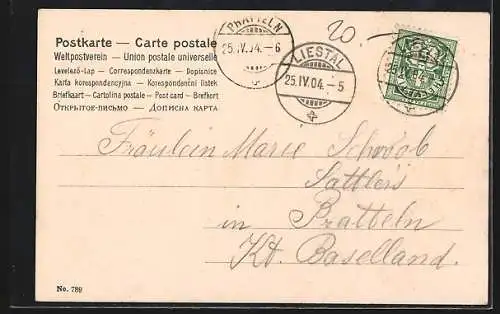 Postkarte — Carte postale
Weltpostverein — Union postale universelle
Levelező-Lap — Correspondenzkarte — Dopisnice
Karta korespondencyjna — Korespondenční lístek
Briefkaart — Cartolina postale — Post card — Brefkort
Открытое-письмо — Дописна карта
PRATTELN
25.IV.04.–6
LIESTAL
25.IV.04.–5
20
Fräulein Marie Schwob
Sattlers
in Pratteln
Kt. Baselland.
No. 789